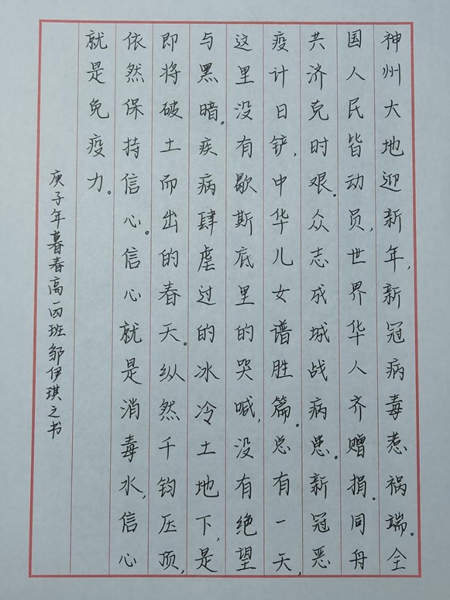 神州大地迎新年，新冠病毒惹祸端。全
国人民皆动员，世界华人齐赠捐。同舟
共济克时艰。众志成城战病患。新冠恶
疫计日铲，中华儿女谱胜篇。总有一天，
这里没有歇斯底里的哭喊，没有绝望
与黑暗。疾病肆虐过的冰冷土地下，是
即将破土而出的春天。纵然千钧压顶，
依然保持信心。信心就是消毒水，信心
就是免疫力。
庚子年暮春高一四班邹伊琪之书